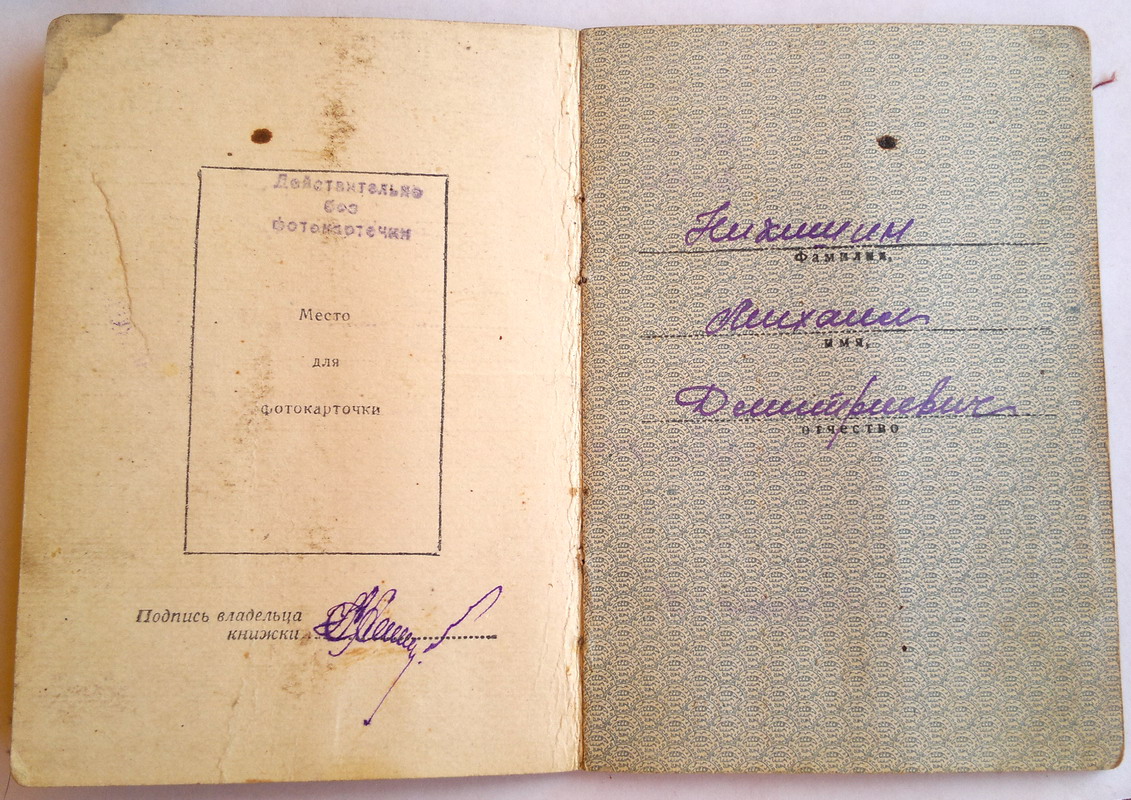 Действительно
без
фотокарточки
Место
для
фотокарточки
Подпись владельца
книжки
Никишин
Фамилия,
Михаил
имя,
Дмитриевич
отчество